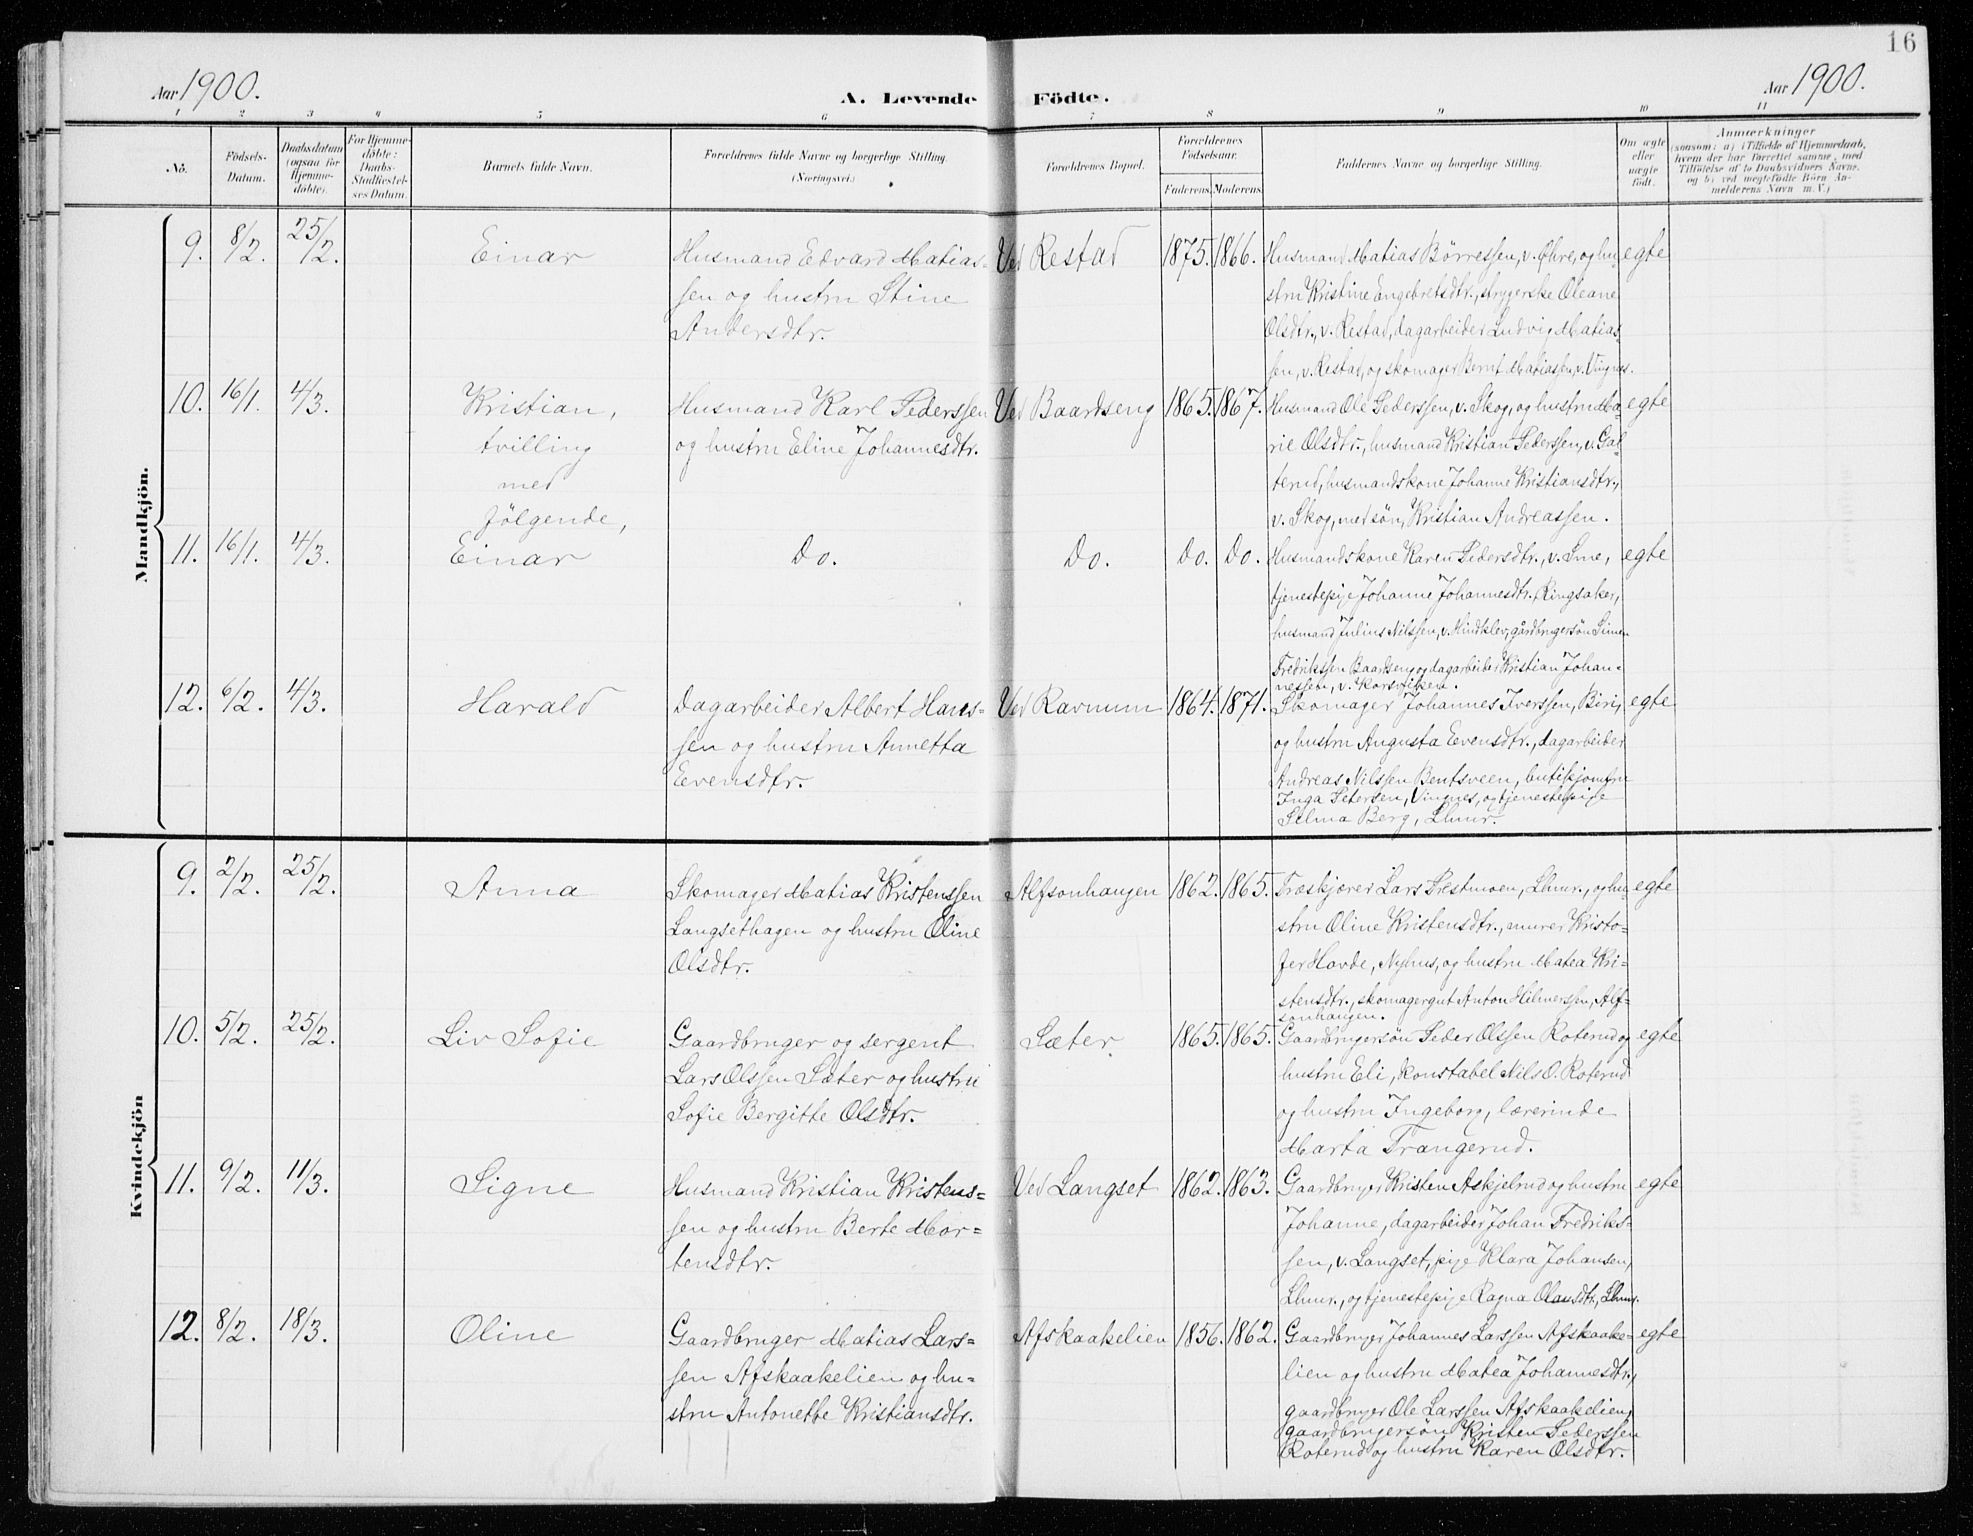 16
Aar 1900.
A. Levende Födte.
Aar 1900.
1 2 3 4 5 6 7 8 9 10 11
No.
Födsels-
Datum.
Daabsdatum
(ogsaa for
Hjemme-
döbte).
For Hjemme-
döbte:
Daabs-
Stadfæstel-
ses Datum.
Barnets fulde Navn.
Forældrenes fulde Navne og borgerlige Stilling.
(Næringsvei.)
Forældrenes Bopæl.
Forældrenes
Födselsaar.
Faderens. Moderens.
Faddernes Navne og borgerlige Stilling.
Om ægte
eller
uægte
födt.
Anmærkninger
(saasom: a) i Tilfælde af Hjemmedaab,
hvem der har forrettet samme, med
Tilföielse af to Daabsvidners Navne,
og b) ved uegtefödte Börn An-
melderens Navn m. V.)
Mandkjön.
9. 8/2. 25/2. Einar
Husmand Edvard Matias-
sen og hustru Stine
Andersdtr.
Ved Restad 1875. 1866.
Husmand Matias Börressen, v. Öhre, og hu-
stru Kristine Engebretsdtr., strygerske Oleane
Olsdtr., v. Restad, dagarbeider Ludvig Matias-
sen, v. Restad, og skomager Bernt Matiassen, v. Vingnes.
egte
10. 16/1. 4/3. Kristian,
tvilling
med
følgende,
Husmand Karl Pederssen
og hustru Eline Johannesdtr.
Ved Baardseng 1865. 1867.
Husmand Ole Pederssen, v. Skog, og hustru Ma-
rie Olsdtr., husmand Kristian Pederssen, v. Gal-
terud, husmandskone Johanne Kristiansdtr.,
v. Skog, med søn, Kristian Andreassen.
egte
11. 16/1. 4/3. Einar
Do.
Do. Do. Do.
Husmandskone Karen Pedersdtr., v. Sme,
tjenestepige Johanne Johannesdtr., Ringsaker,
husmand Julius Nilssen, v. Hindklev, gårdbrugersøn Simen
Fredrikssen Baardseng og dagarbeider Kristian Johan-
nessen, v. Korsviken.
egte
12. 6/2. 4/3. Harald
Dagarbeider Albert Hans-
sen og hustru Annetta
Evensdtr.
Ved Ravnum 1864. 1871.
Skomager Johannes Iverssen, Biri,
og hustru Augusta Evensdtr., dagarbeider
Andreas Nilssen Bentsveen, butikjomfru
Inga Petersen, Vingnes, og tjenestepige
Selma Berg, Lhmr.
egte
Kvindekjön
9. 2/2. 25/2. Anna
Skomager Matias Kristenssen
Langsethagen og hustru Eline
Olsdtr.
Alfsonhaugen 1862. 1865.
Træskjærer Lars Prestmoen, Lhmr., og hu-
stru Oline Kristensdtr., murer Kristo-
fer Hovde, Nyhus, og hustru Matea Kri-
stensdtr., skomagergut Anton Hilmerssen, Alf-
sonhaugen.
egte
10. 5/2. 25/2. Liv Sofie
Gaardbruger og sergent
Lars Olssen Sæter og hustru
Sofie Bergitte Olsdtr.
Sæter 1865. 1865.
Gaardbrugersøn Peder Olssen Roterud og
hustru Eli, konstabel Nils O. Roterud
og hustru Ingeborg, lærerinde
Marta Trangerud.
egte
11. 9/2. 11/3. Signe
Husmand Kristian Kristens-
sen og hustru Berte Mor-
tensdtr.
Ved Langset 1862. 1863.
Gaardbruger Kristen Askjelrud og hustru
Johanne, dagarbeider Johan Fredriks-
sen, v. Langset, pige Klara Johansen,
Lhmr., og tjenestepige Ragna Olausdtr., Lhmr.
egte
12. 8/2. 18/3. Oline
Gaardbruger Matias Lars-
sen Afskaakelien og hu-
stru Antonette Kristiansdtr.
Afskaakelien 1856. 1862.
Gaardbruger Johannes Larssen Afskaake-
lien og hustru Matea Johannesdtr.,
gaardbruger Ole Larssen Afskaakelien,
gaardbrugersøn Kristen Peterssen
Roterud og hustru Karen Olsdtr.
egte